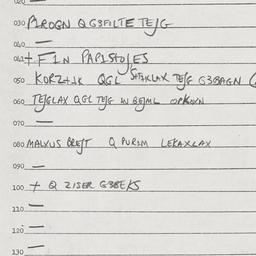 020
030 PLROGN Q G3FILTE TEJG
040 —
041 + FIN PARLSTOJES
050 KORZ+JK QGL SHSKLAX TEJG G3BAGN
060 TEJGLAX QGL TEJG W BEJML OPKOXN
070 —
080 MALXUS OREJT Q PURSM LEKAXLAX
090 —
100 + Q ZISER G3BEKS
110 —
120 —
130 —